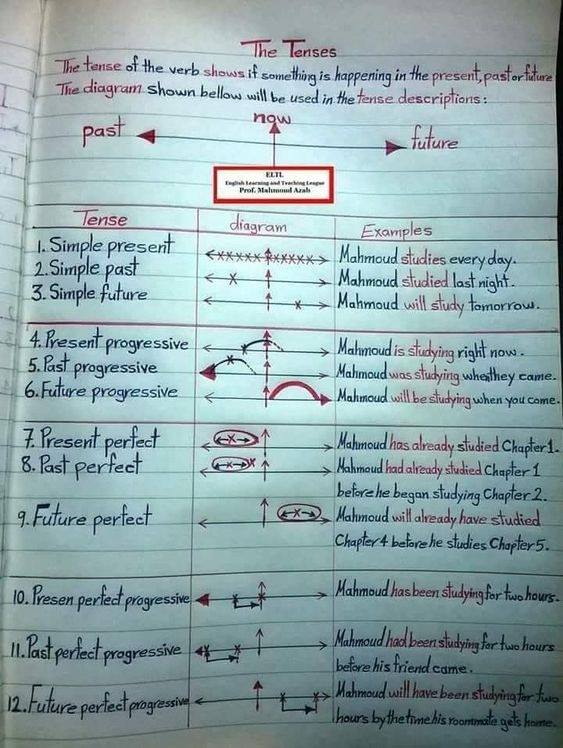 The Tenses
The tense of the verb shows if something is happening in the present, past or future
The diagram shown bellow will be used in the tense descriptions:
now
past future
ELTL
English Learning and Teaching League
Prof. Mahmoud Azab
Tense diagram Examples
1. Simple present Mahmoud studies every day.
2. Simple past Mahmoud studied last night.
3. Simple future Mahmoud will study tomorrow.
4. Present progressive Mahmoud is studying right now.
5. Past progressive Mahmoud was studying when they came.
6. Future progressive Mahmoud will be studying when you come.
7. Present perfect Mahmoud has already studied Chapter 1.
8. Past perfect Mahmoud had already studied Chapter 1
before he began studying Chapter 2.
9. Future perfect Mahmoud will already have studied
Chapter 4 before he studies Chapter 5.
10. Presen perfect progressive Mahmoud has been studying for two hours.
11. Past perfect progressive Mahmoud had been studying for two hours
before his friend came.
12. Future perfect progressive Mahmoud will have been studying for two
hours by the time his roommate gets home.